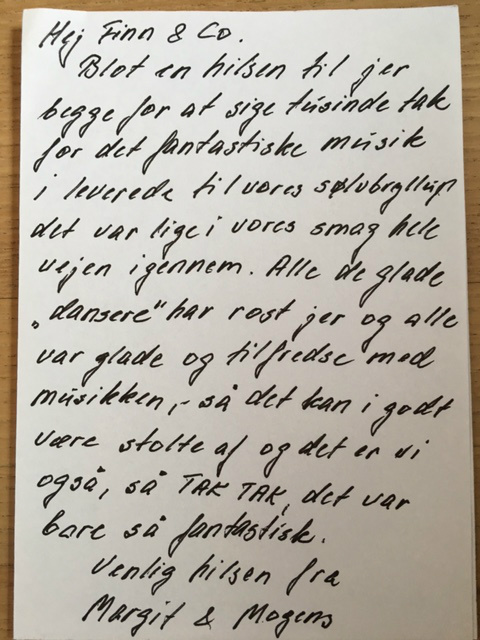 Hej Finn & Co.
Blot en hilsen til jer
begge for at sige tusinde tak
for det fantastiske musik
i leverede til vores sølvbryllup
det var lige i vores smag hele
vejen igennem. Alle de glade
„dansere“ har rost jer og alle
var glade og tilfredse med
musikken,- så det kan i godt
være stolte af og det er vi
også, så TAK TAK, det var
bare så fantastisk.
Venlig hilsen fra
Margit & Mogens